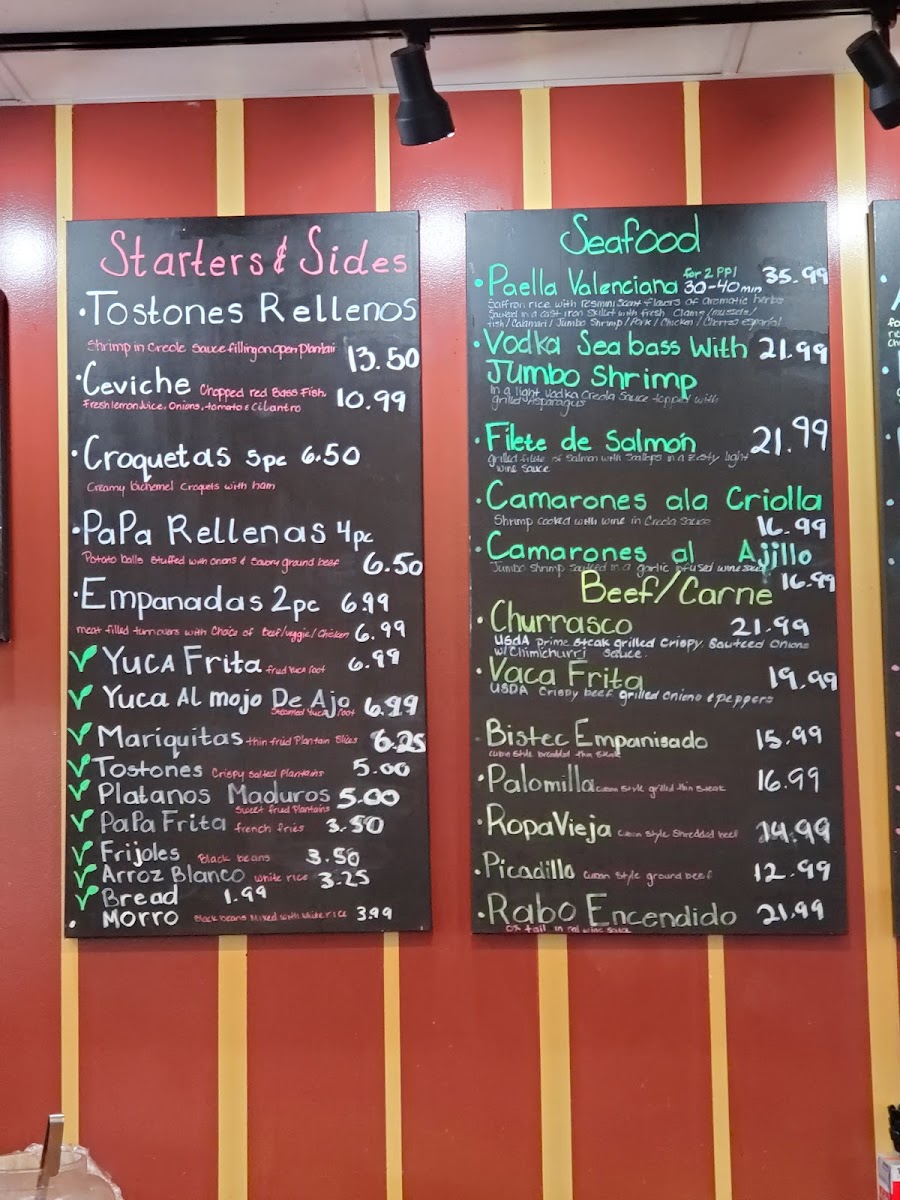 Starters & Sides
·Tostones Rellenos
Shrimp in Creole Sauce filling on open Plantain 13.50
·Ceviche Chopped red Bass Fish,
Fresh lemon Juice, Onions, tomato & Cilantro 10.99
·Croquetas 5pc 6.50
Creamy bichemel Croquets with ham
·PaPa Rellenas 4pc
Potato balls Stuffed with onions & Savory ground beef 6.50
·Empanadas 2pc 6.99
meat filled turnovers with Choice of Beef/veggie/Chicken 6.99
Yuca Frita fried Yuca root 6.99
Yuca Al mojo De Ajo 6.99
Steamed Yuca root
Mariquitas thin fried Plantain Slices 6.25
Tostones Crispy Salted Plantains 5.00
Platanos Maduros 5.00
Sweet fried Plantains
PaPa Frita french fries 3.50
Frijoles Black beans 3.50
Arroz Blanco white rice 3.25
Bread 1.99
· Morro Black beans Mixed with white rice 3.99
Seafood
·Paella Valenciana for 2 PPl 30-40 min 35.99
Saffron rice with Scent flavors of aromatic herbs
Sauteed in a cast iron Skillet with fresh Clams/mussels/
fish/Calamari/Jumbo Shrimp/Pork/Chicken/
·Vodka Seabass With 21.99
Jumbo Shrimp
in a light vodka Creola Sauce topped with
grilled Asparagus
·Filete de Salmón 21.99
grilled filete of Salmon with Scallops in a zesty light
wine Sauce
·Camarones ala Criolla
Shrimp cooked with wine in Creola Sauce 16.99
·Camarones al Ajillo
Jumbo Shrimp Sauteed in a garlic infused wine sauce 16.99
Beef/Carne
·Churrasco 21.99
USDA Prime Steak grilled Crispy Sauteed Onions
w/Chimichurri Sauce.
·Vaca Frita 19.99
USDA Crispy beef grilled Onions & peppers
·Bistec Empanisado 15.99
Cuban Style breaded thin Steak
·Palomilla Cuban Style grilled thin Steak 16.99
·Ropa Vieja Cuban Style Shredded beef 14.99
·Picadillo Cuban Style ground beef 12.99
·Rabo Encendido 21.99
Ox tail in red wine sauce